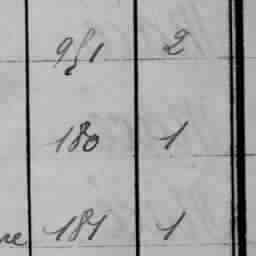 951 2
180 1
re 181 1